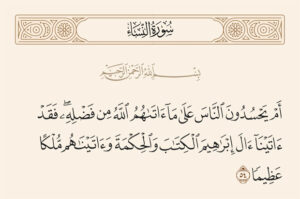 سُورَةُ النِّسَاءِ
بِسْمِ اللَّهِ الرَّحْمَٰنِ الرَّحِيمِ
أَمْ يَحْسُدُونَ ٱلنَّاسَ عَلَىٰ مَآ ءَاتَىٰهُمُ ٱللَّهُ مِن فَضْلِهِۦ ۖ فَقَدْ
ءَاتَيْنَآ ءَالَ إِبْرَٰهِيمَ ٱلْكِتَٰبَ وَٱلْحِكْمَةَ وَءَاتَيْنَٰهُم مُّلْكًا
عَظِيمًا ٥٤